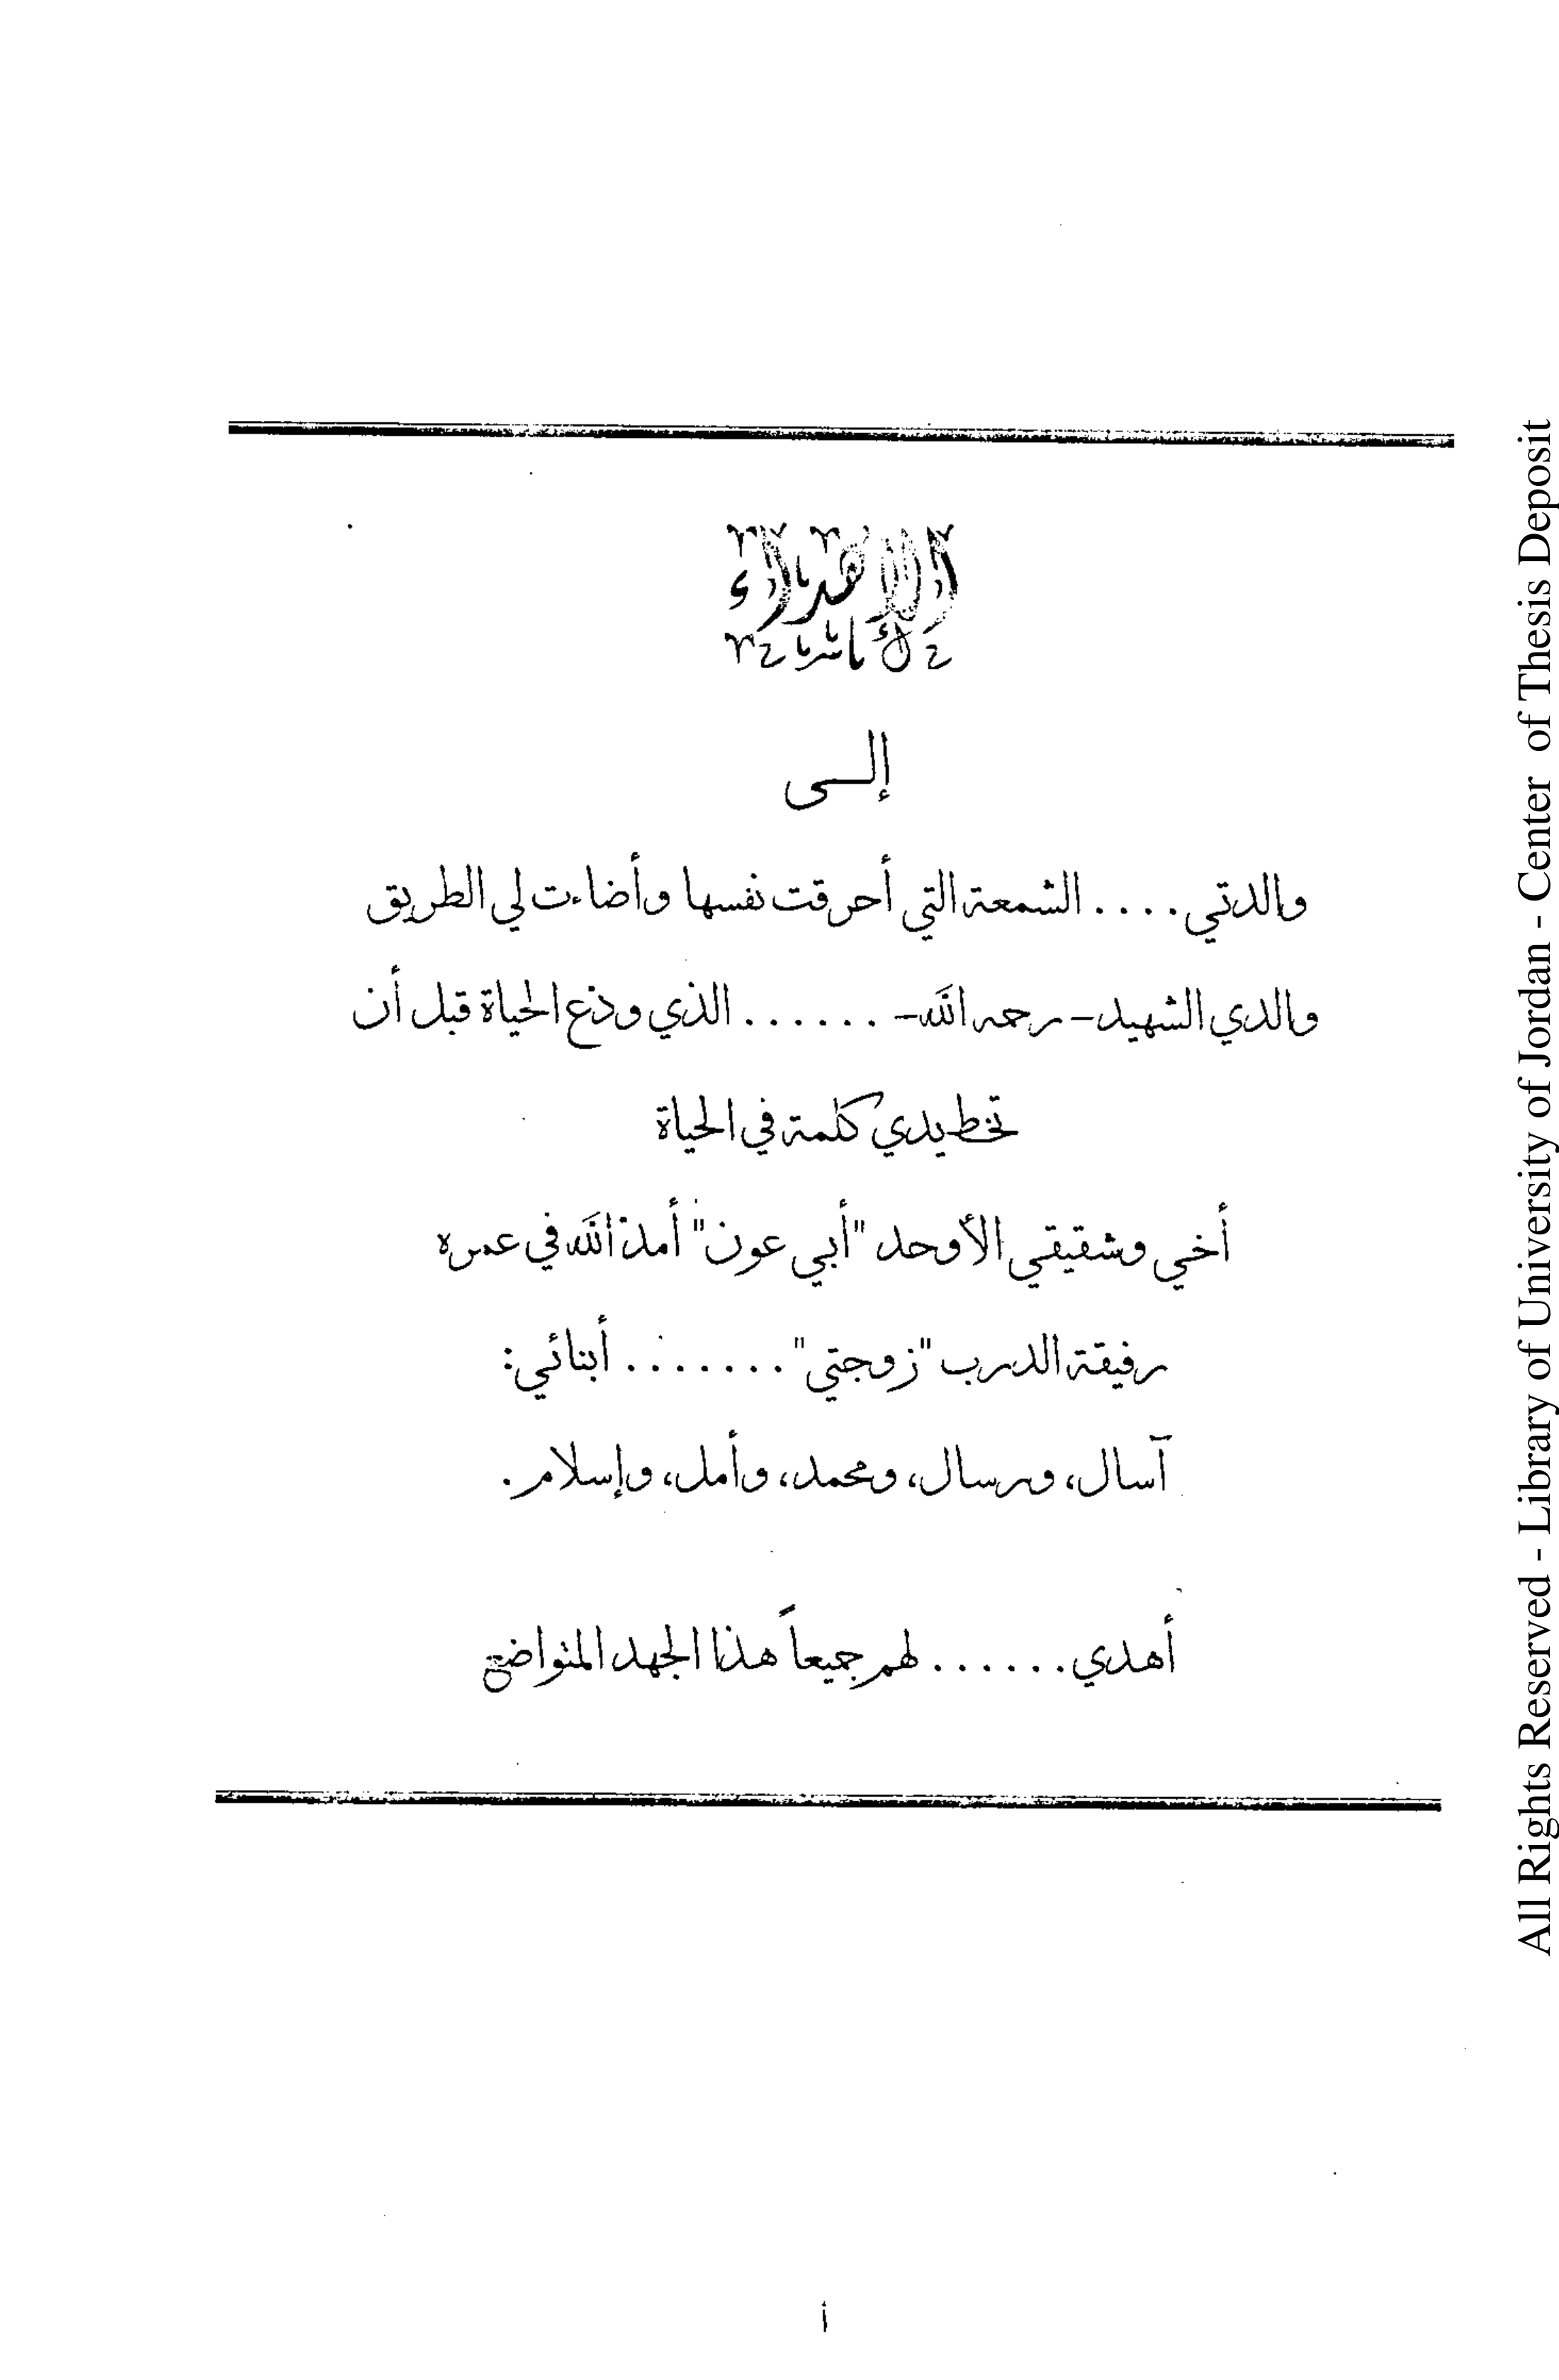 الإهداء
إلــى
والدتي.... الشمعة التي أحرقت نفسها وأضاءت لي الطريق
والدي الشهيد- رحمه الله- ...... الذي ودّع الحياة قبل أن
تخط يدي كلمة في الحياة
أخي وشقيقي الأوحد "أبي عون" أمدّ الله في عمره
رفيقة الدرب "زوجتي"....... أبنائي:
آسال، ورسال، ومحمد، وأمل، وإسلام.
أهدي...... لهم جميعاً هذا الجهد المتواضع
أ
All Rights Reserved - Library of University of Jordan - Center of Thesis Deposit